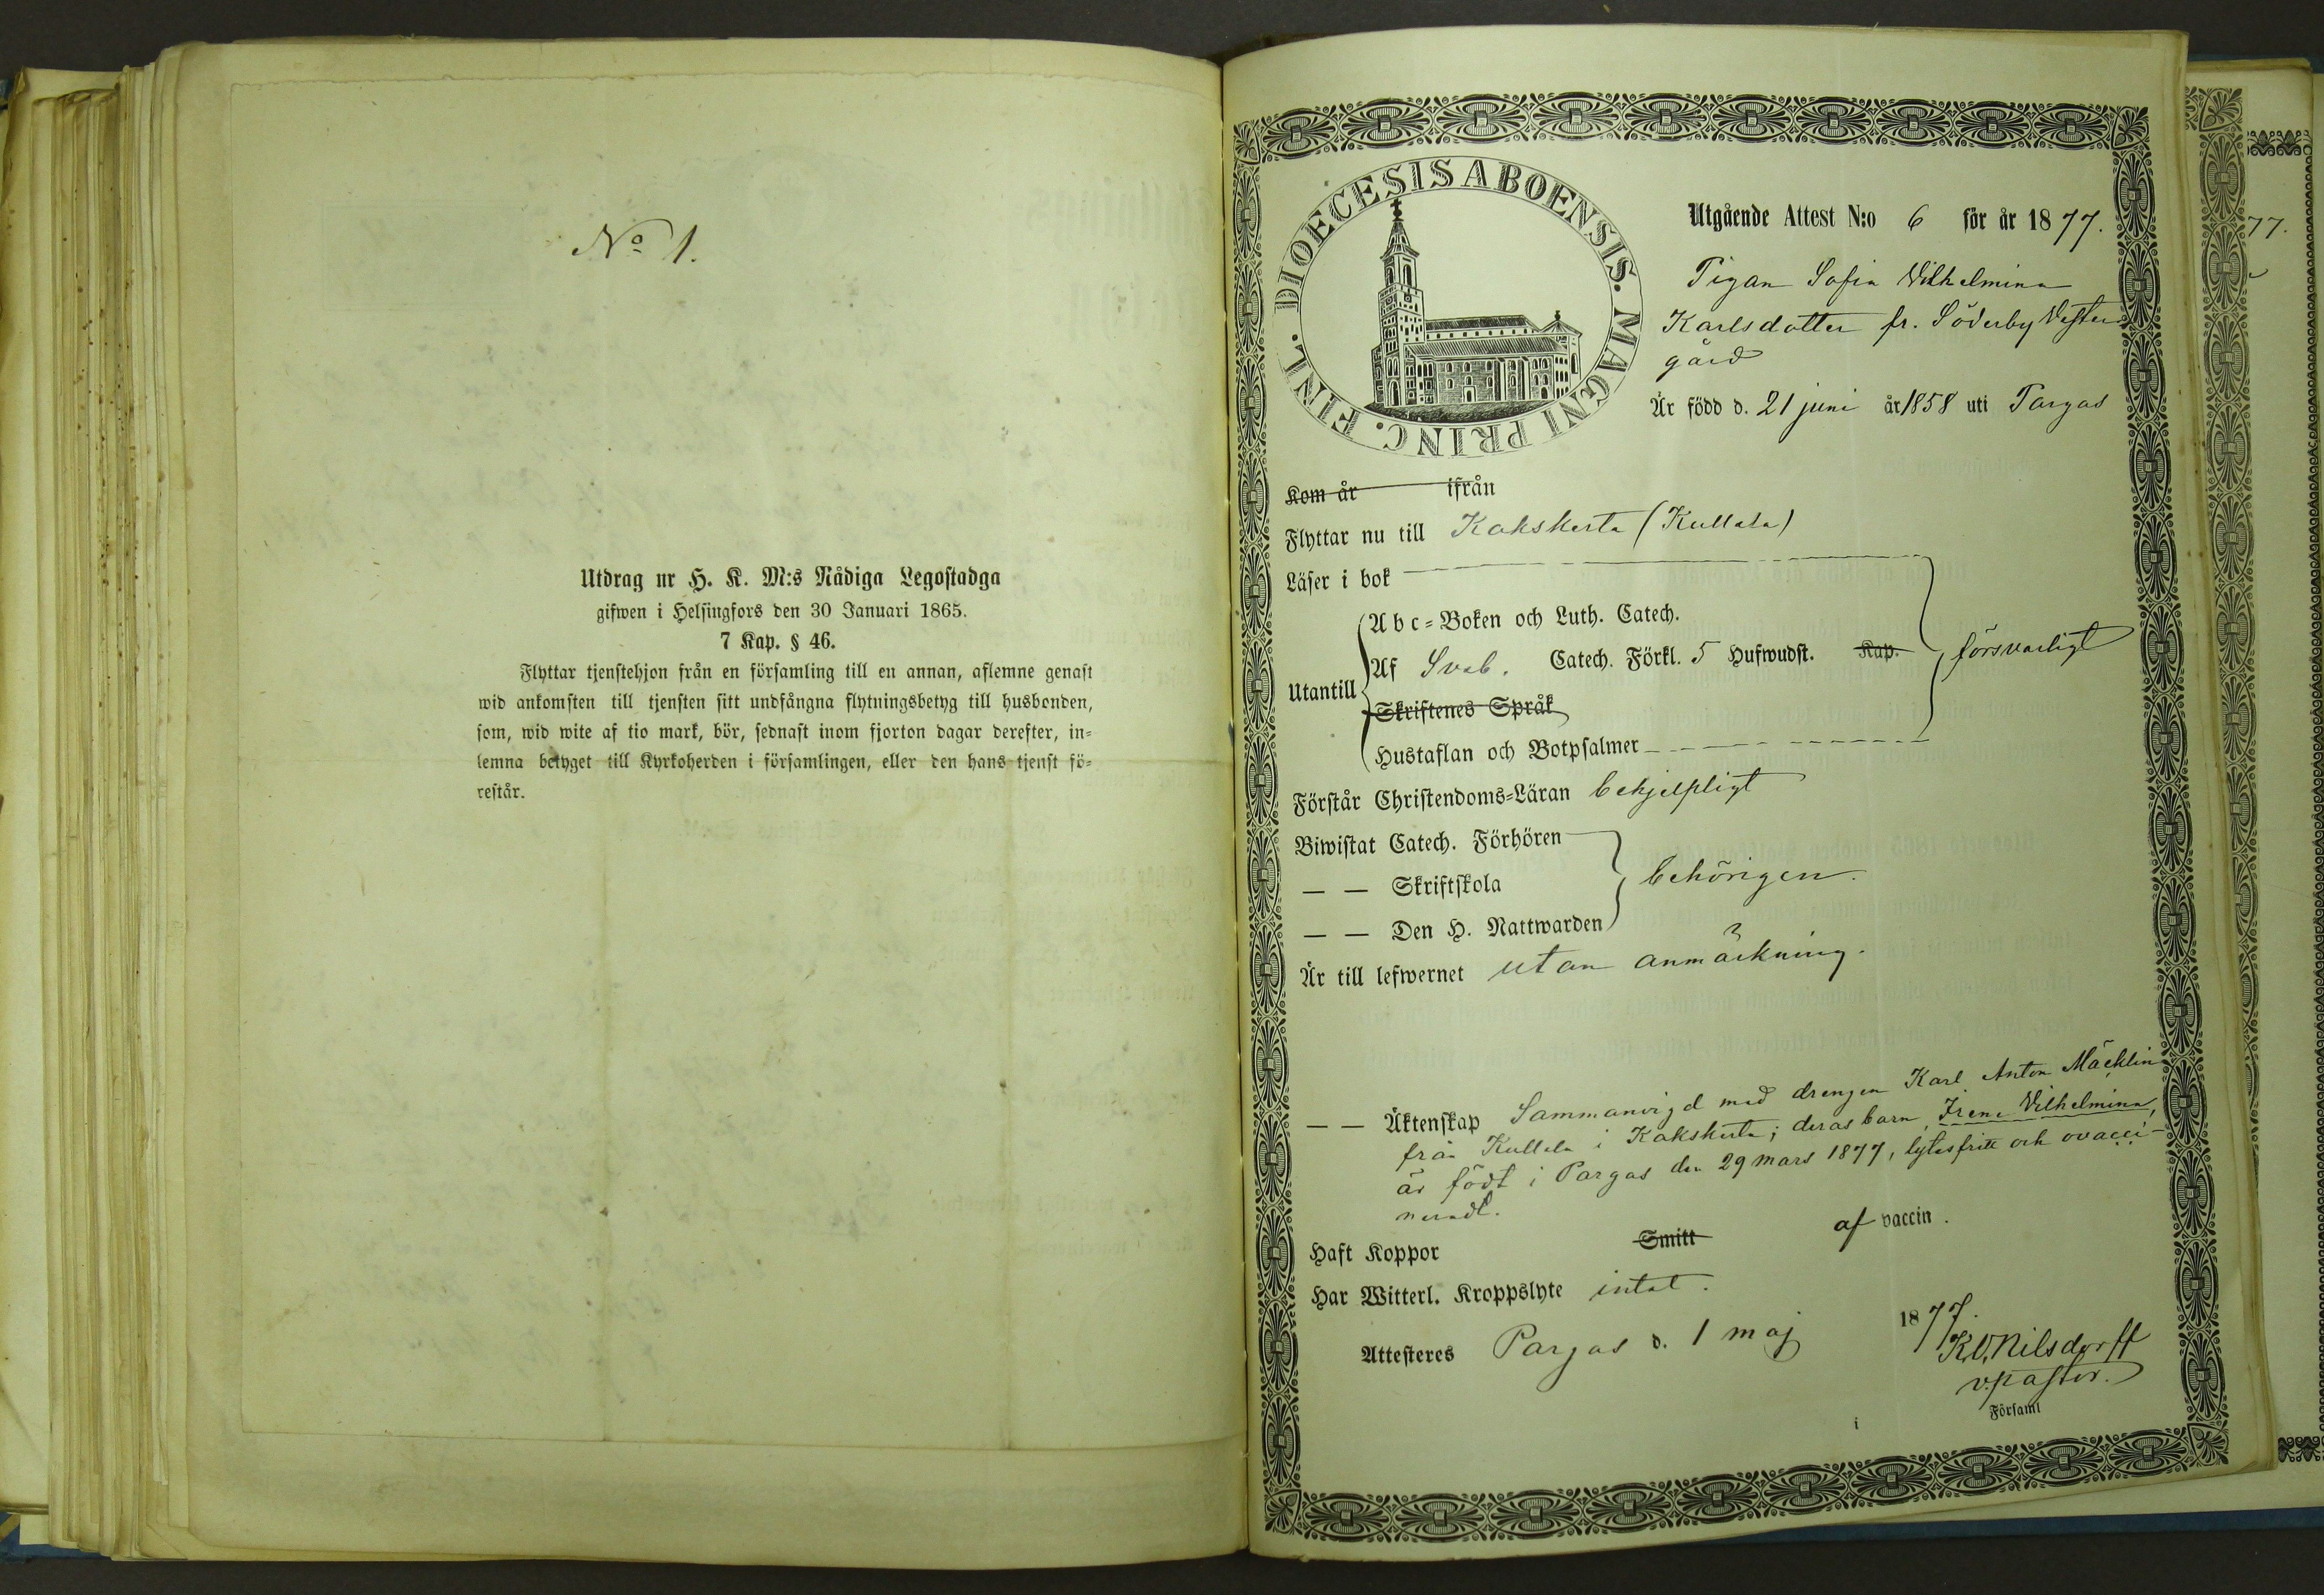 No 1.
Utdrag ur H. K. M:s Nådiga Legostadga
gifwen i Helsingfors den 30 Januari 1865.
7 Kap. § 46.
Flyttar tjenstehjon från en församling till en annan, aflemne genast
wid ankomsten till tjensten sitt undfångna flytningsbetyg till husbonden,
som, wid wite af tio mark, bör, sednast inom fjorton dagar derefter, in-
lemna betyget till Kyrkoherden i församlingen, eller den hans tjenst fö-
restår.
DIOECESIS ABOENSIS. MAGNI PRINC. FINL.
Utgående Attest N:o 6 för år 1877.
Pigan Sofia Vilhelmina
Karlsdotter fr. Söderby Vester
gård
Är född d. 21 juni år 1858 uti Pargas
Kom år ifrån
Flyttar nu till Kakskerta (Kullala)
Läser i bok
Abc-Boken och Luth. Catech.
Utantill Af Sveb. Catech. Förkl. 5 Hufwudst. Kap. försvarligt
Skriftenes Språk
Hustaflan och Botpsalmer
Förstår Christendoms-Läran behjelpligt
Biwistat Catech. Förhören
— — Skriftskola behörigen.
— — Den H. Nattwarden
Är till lefwernet utan anmärkning.
— — Äktenskap Sammanvigd med drengen Karl Anton Mäcklin
från Kullala i Kakskerta; deras barn, Irene Vilhelmina,
är född i Pargas den 29 mars 1877, lytesfritt och ovacci-
neradt.
Haft Koppor Smitt af vaccin.
Har Witterl. Kroppslyte intet.
Attesteres Pargas d. 1 maj 1877.
K.V. Nilsdorff
v.pastor.
i Församl
77.